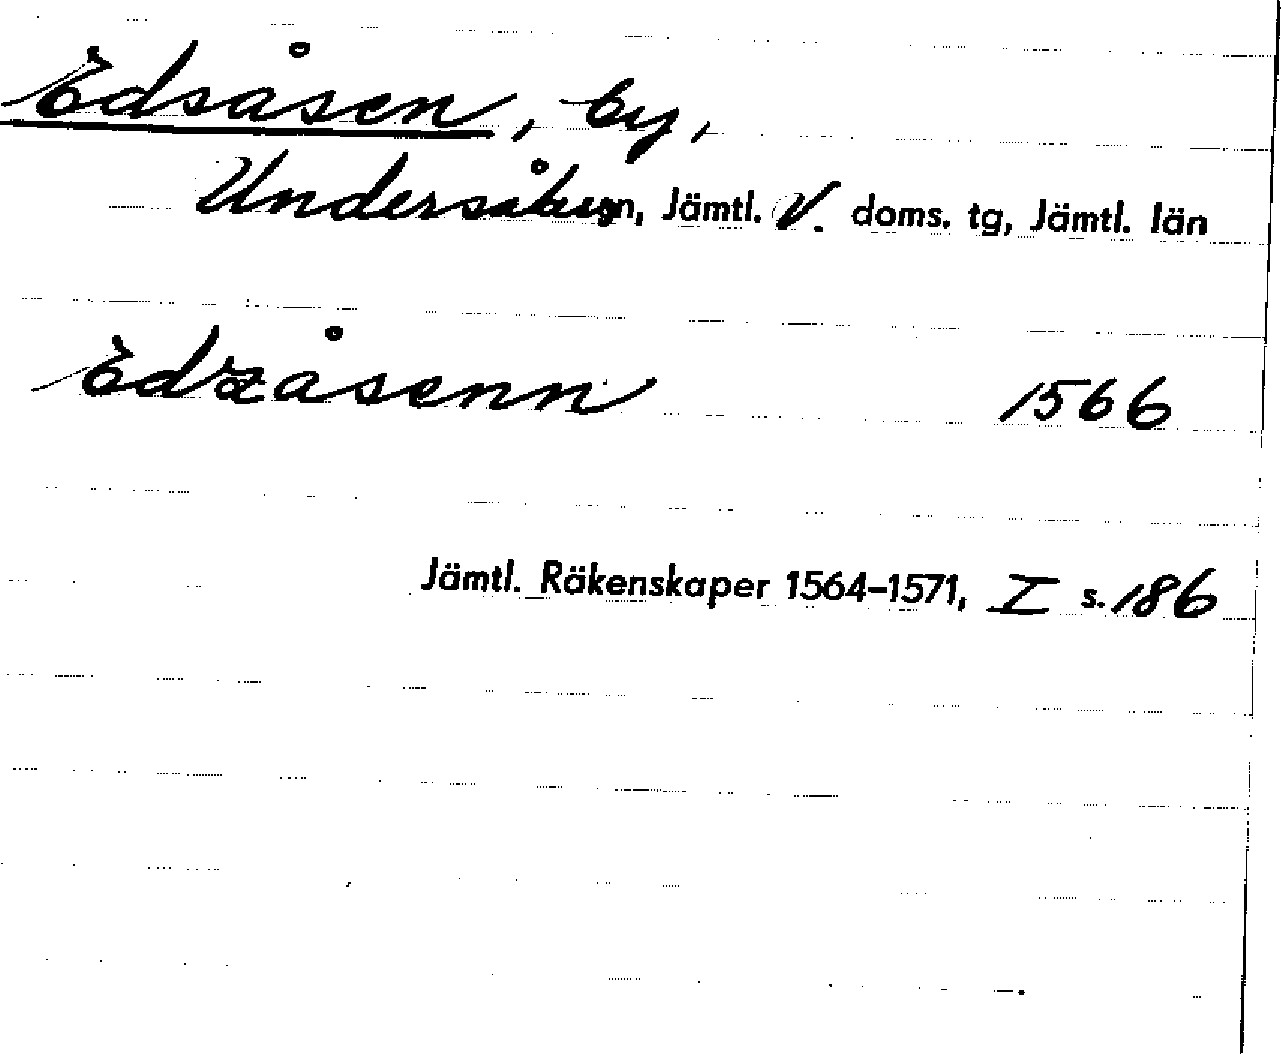 Edsåsen, by,
Undersåkers sn, Jämtl. V. doms. tg, Jämtl. län
Edzåsenn 1566
Jämtl. Räkenskaper 1564-1571, I s. 186